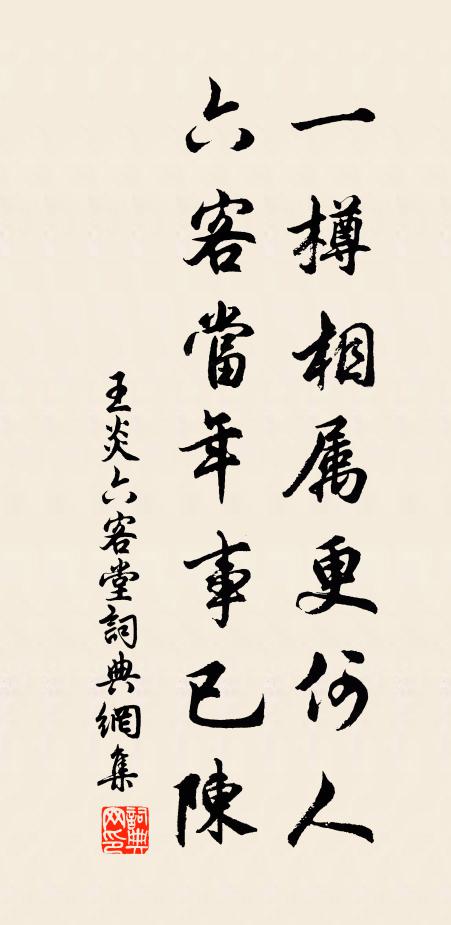 一樽相属更何人
六客當年事已陳
王炎六客堂詞典網集
詞典
网印